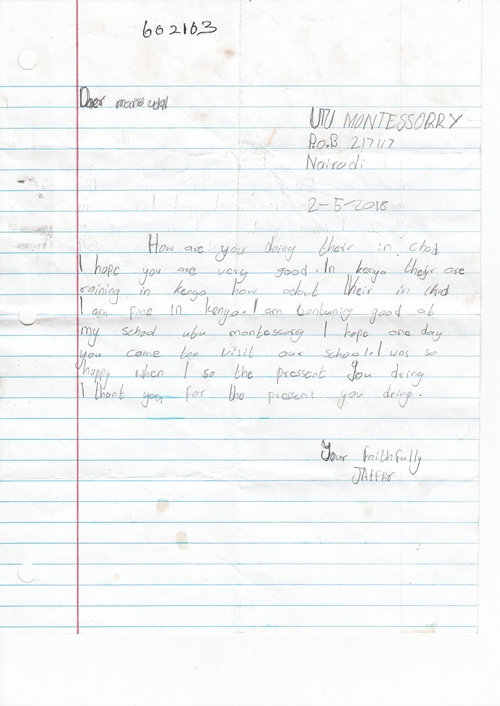 602103
Daer
UTU MONTESSORRY
P.O.B 217117
Nairudi
2-5-2018
How are you doing their in chad
I hope you are very good. In kenya their are
raining in kenya how adout their in chad
I am fine In kenya. I am good at
my school utu montessory I hope one day
you came too visit our school. I was so
happy when I so the pressent you dring
I thank you for the pressent you dring.
Your faithfully
JAFFAR